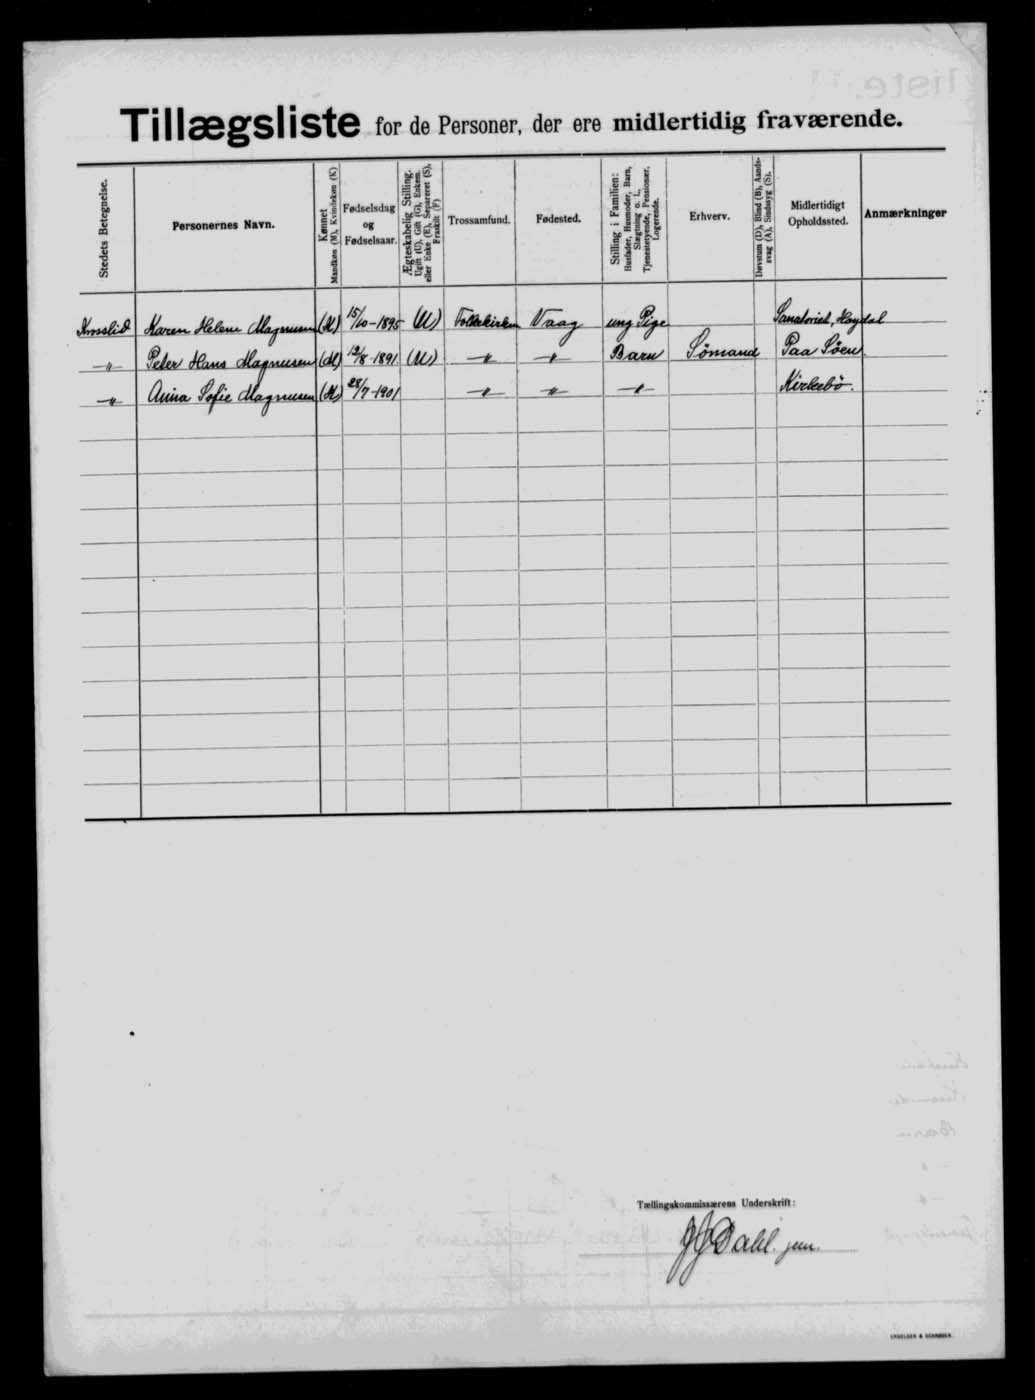 Tillægsliste for de Personer, der ere midlertidig fraværende.
Stedets Betegnelse.
Personernes Navn.
Kønnet
Mandkøn (M), Kvindekøn (K)
Fødselsdag
og
Fødselsaar.
Ægteskabelig Stilling.
Ugift (U), Gift (G), Enkem.
eller Enke (E), Separeret (S),
Fraskilt (F)
Trossamfund.
Fødested.
Stilling i Familien:
Husfader, Husmoder, Barn,
Slægtning o. l.,
Tjenestetyende, Pensionær,
Logerende.
Erhverv.
Døvstum (D), Blind (B), Aands-
svag (A), Sindssyg (S).
Midlertidigt
Opholdssted.
Anmærkninger
Krosslid Karen Helene Magnusen (K) 15/10-1895 (U) Folkekirken Vaag ung Pige Sanatoriet, Hoydal
-"- Peter Hans Magnusen (M) 12/8-1891 (U) -"- -"- Barn Sömand Paa Söen
-"- Anna Sofie Magnusen (K) 28/7-1901 -"- -"- -"- Kirkebö.
Tællingskommissærens Underskrift:
JJDahl. jun.